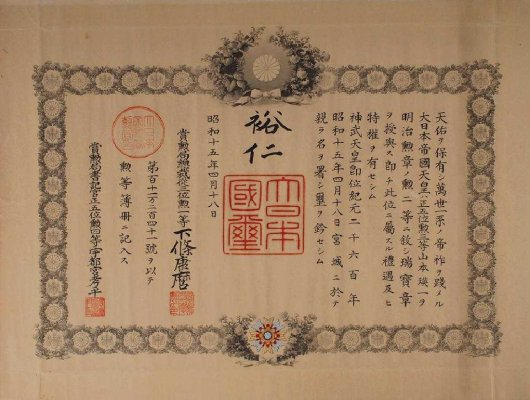 天佑ヲ保有シ萬世一系ノ帝祚ヲ踐メル
大日本帝國天皇ハ正五位勲三等山本瑛一ヲ
明治勲章ノ勲二等ニ敘シ瑞寶章
ヲ授與ス即チ此位ニ屬スル禮遇及ヒ
特權ヲ有セシム
神武天皇即位紀元二千六百年
昭和十五年四月十八日宮城ニ於テ
親ラ名ヲ署シ璽ヲ鈐セシム
裕仁
大日本國璽
昭和十五年四月十八日
賞勲局總裁從三位勲一等下條康麿
第百十一万二百四十一號ヲ以テ
勲等簿册ニ記入ス
賞勲局書記官正五位勲四等宇都宮孝平